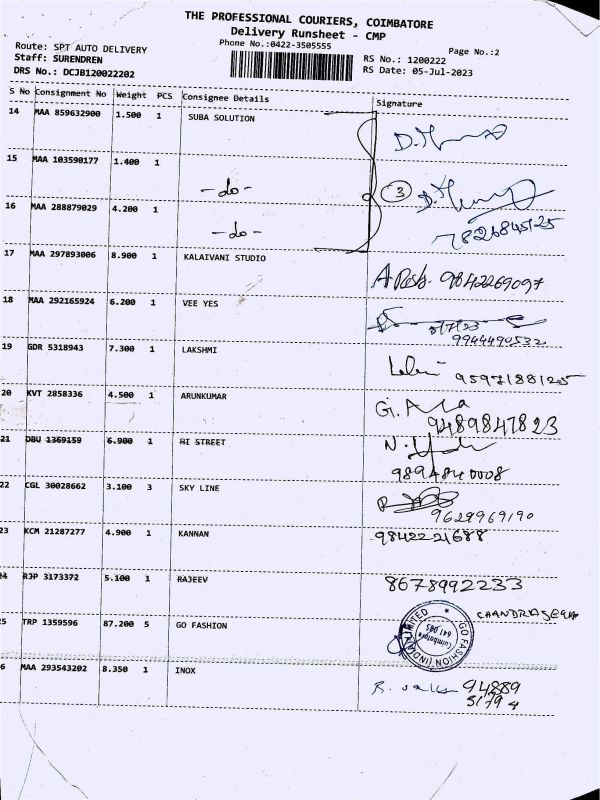 THE PROFESSIONAL COURIERS, COIMBATORE
Delivery Runsheet - CMP
Phone No.:0422-3505555
Page No.:2
Route: SPT AUTO DELIVERY
Staff: SURENDREN
DRS No.: DCJB120022202
RS No.: 1200222
RS Date: 05-Jul-2023
S No Consignment No Weight PCS Consignee Details Signature
14 MAA 859632900 1.500 1 SUBA SOLUTION
15 MAA 103590177 1.400 1 -do- 3
16 MAA 288879029 4.200 1 -do- 7826845125
17 MAA 297893006 8.900 1 KALAIVANI STUDIO 9842269097
18 MAA 292165924 6.200 1 VEE YES 5/7/23
9944490532
19 GDR 5318943 7.300 1 LAKSHMI 9597188125
20 KVT 2858336 4.500 1 ARUNKUMAR 9489847823
21 DBU 1369159 6.900 1 HI STREET 9894840008
22 CGL 30028662 3.100 3 SKY LINE 9629969190
23 KCM 21287277 4.900 1 KANNAN 9842221688
24 RJP 3173372 5.100 1 RAJEEV 8678992233
5 TRP 1359596 87.200 5 GO FASHION
GO FASHION (INDIA) LIMITED
Coimbatore
641 045
6 MAA 293543202 8.350 1 INOX 94889
51794